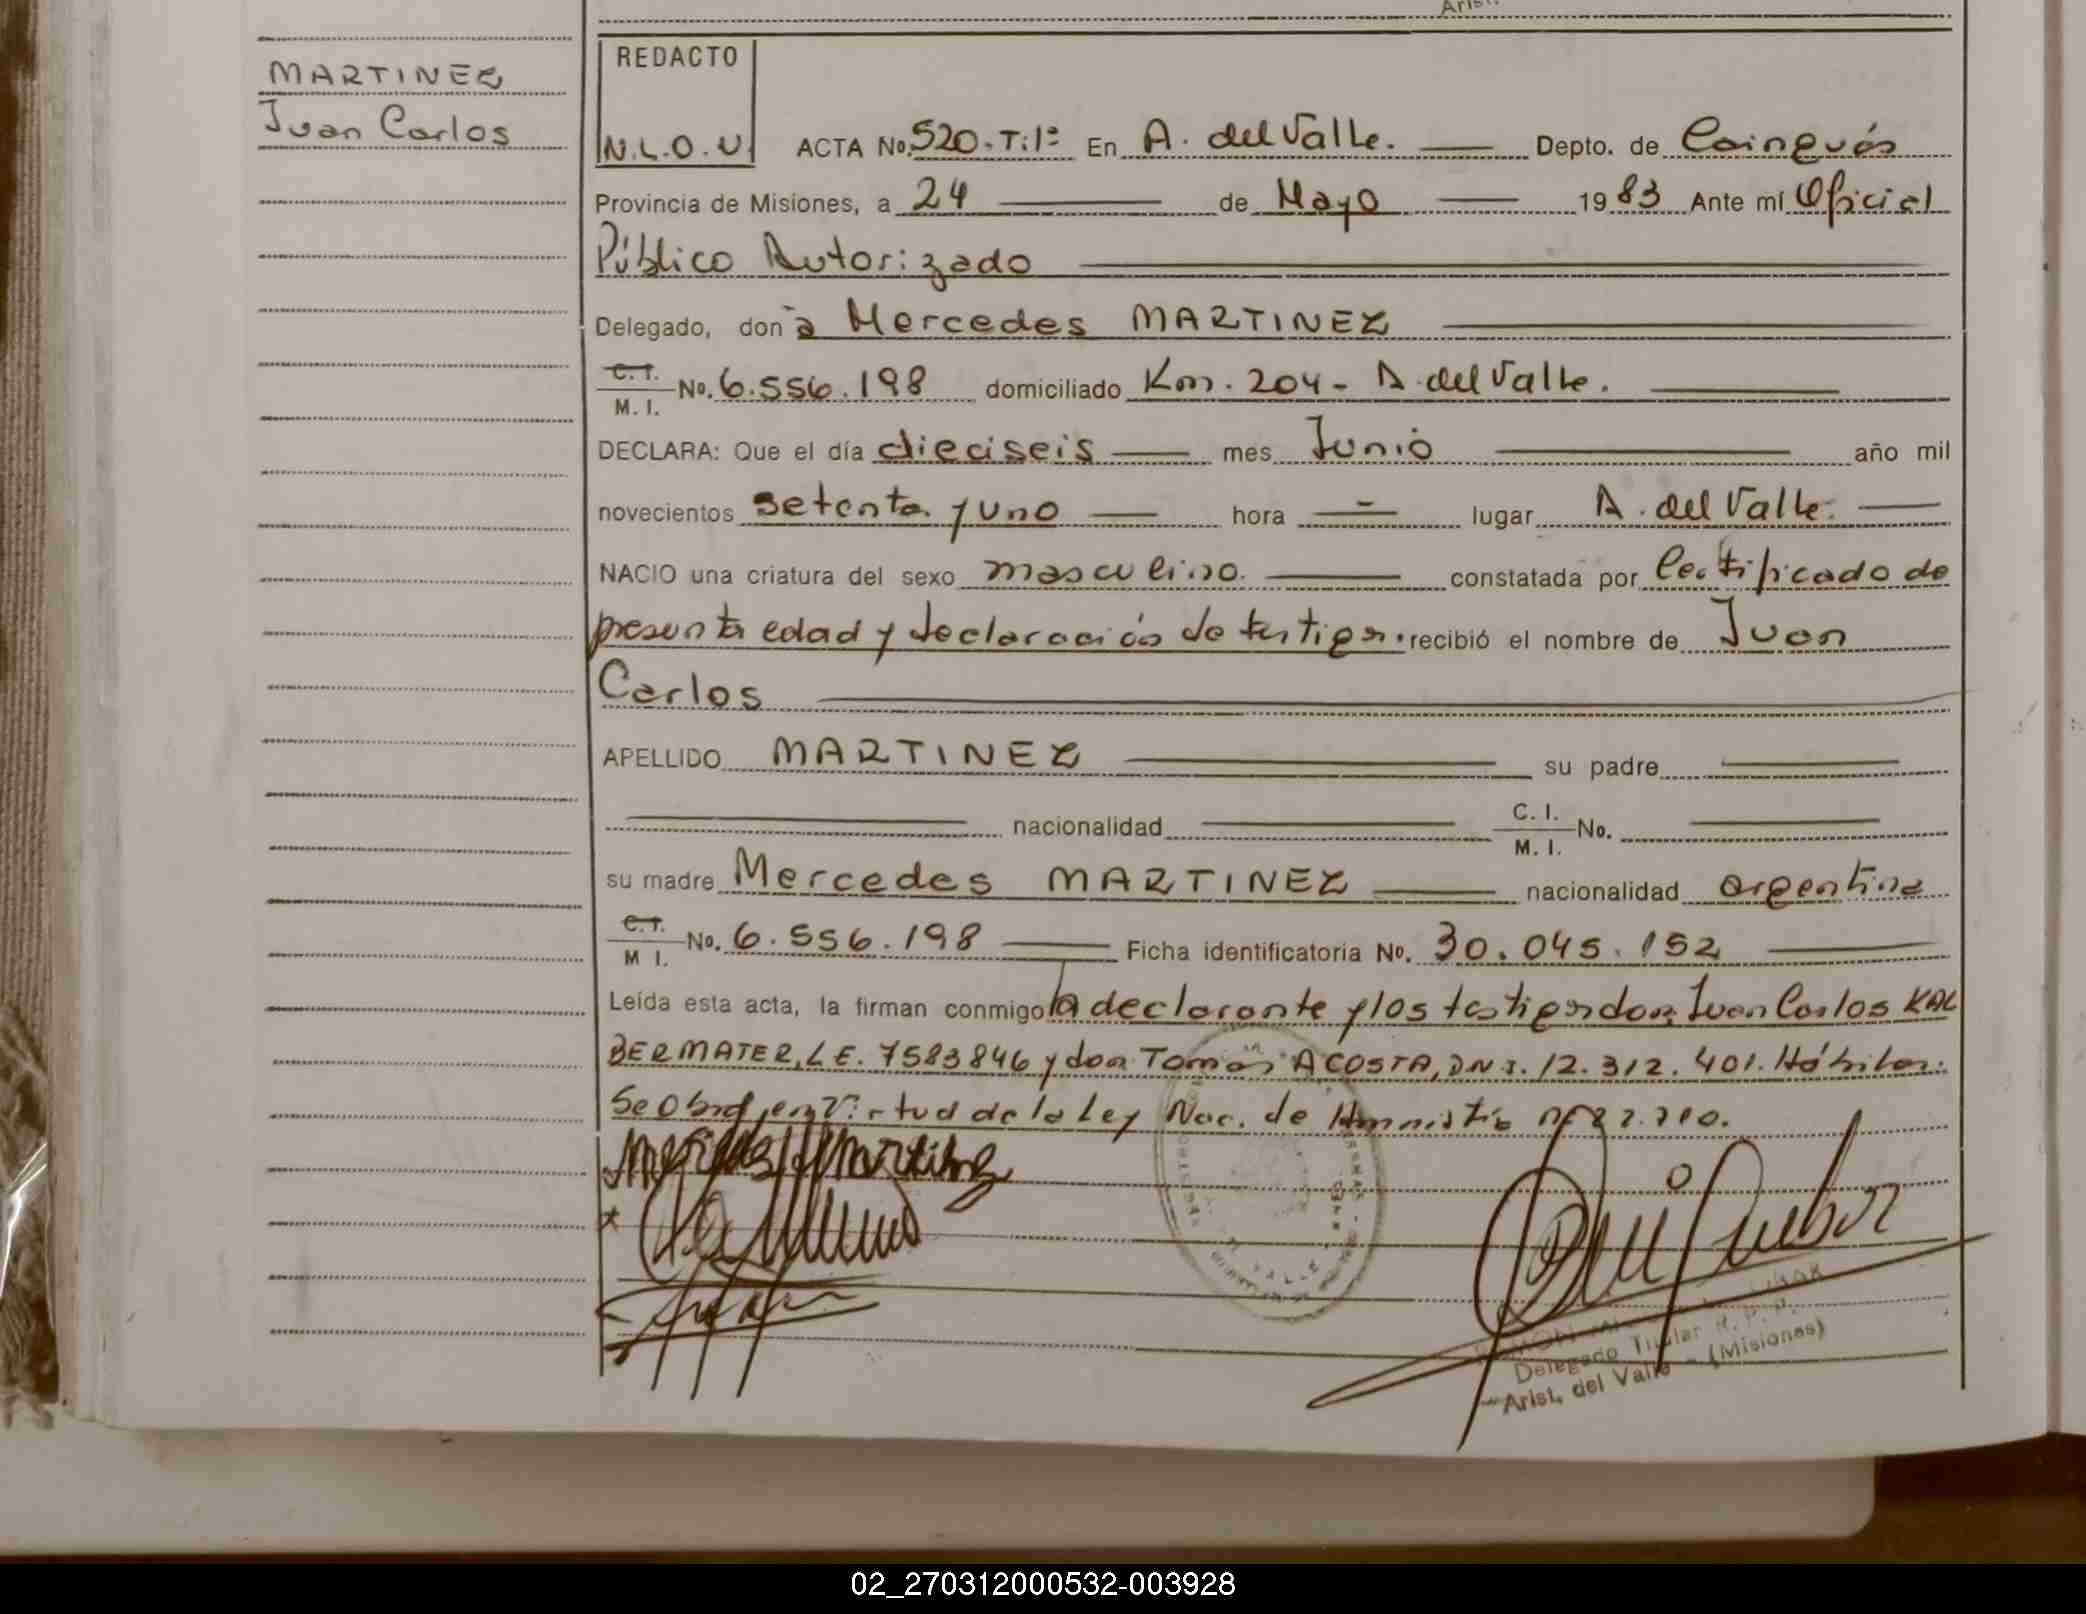 MARTINEZ
Juan Carlos
REDACTO
N.L.O.U.
ACTA No. 520-T:1º En A. del Valle. Depto. de Cainguás
Provincia de Misiones, a 24 de Mayo 1983 Ante mí Oficial
Público Autorizado
Delegado, don a Mercedes MARTINEZ
C.I. M.I. No. 6.556.198 domiciliado Km. 204- A. del Valle.
DECLARA: Que el día dieciseis mes Junio año mil
novecientos setenta y uno hora - lugar A. del Valle.
NACIO una criatura del sexo masculino. constatada por Certificado de
presunta edad y declaración de testigos. recibió el nombre de Juan
Carlos
APELLIDO MARTINEZ su padre
nacionalidad C. I. M. I. No.
su madre Mercedes MARTINEZ nacionalidad argentina
C.I. M I. No. 6.556.198 Ficha identificatoria No. 30.045.152
Leída esta acta, la firman conmigo la declarante y los testigos don Juan Carlos KAL
BERMATER, L.E. 7583846 y don Tomás ACOSTA, D.N.I. 12.312.401. Hábiles.
Se obró en virtud de la Ley Nac. de Amnistía nº 22.710.
Mercedes Martinez
Delegado Titular R. P. P.
Arist. del Valle - (Misiones)
02_270312000532-003928